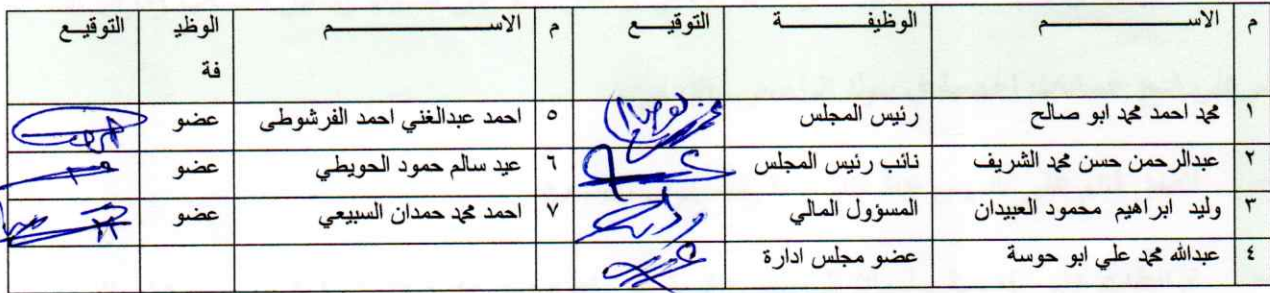 م الاســـــــــم الوظيفـــــــة التوقيـــع م الاســـــــــم الوظيفة التوقيـــع
١ محمد احمد محمد ابو صالح رئيس المجلس ٥ احمد عبدالغني احمد الفرشوطى عضو
٢ عبدالرحمن حسن محمد الشريف نائب رئيس المجلس ٦ عيد سالم حمود الحويطي عضو
٣ وليد ابراهيم محمود العبيدان المسؤول المالي ٧ احمد محمد حمدان السبيعي عضو
٤ عبدالله محمد علي ابو حوسة عضو مجلس ادارة